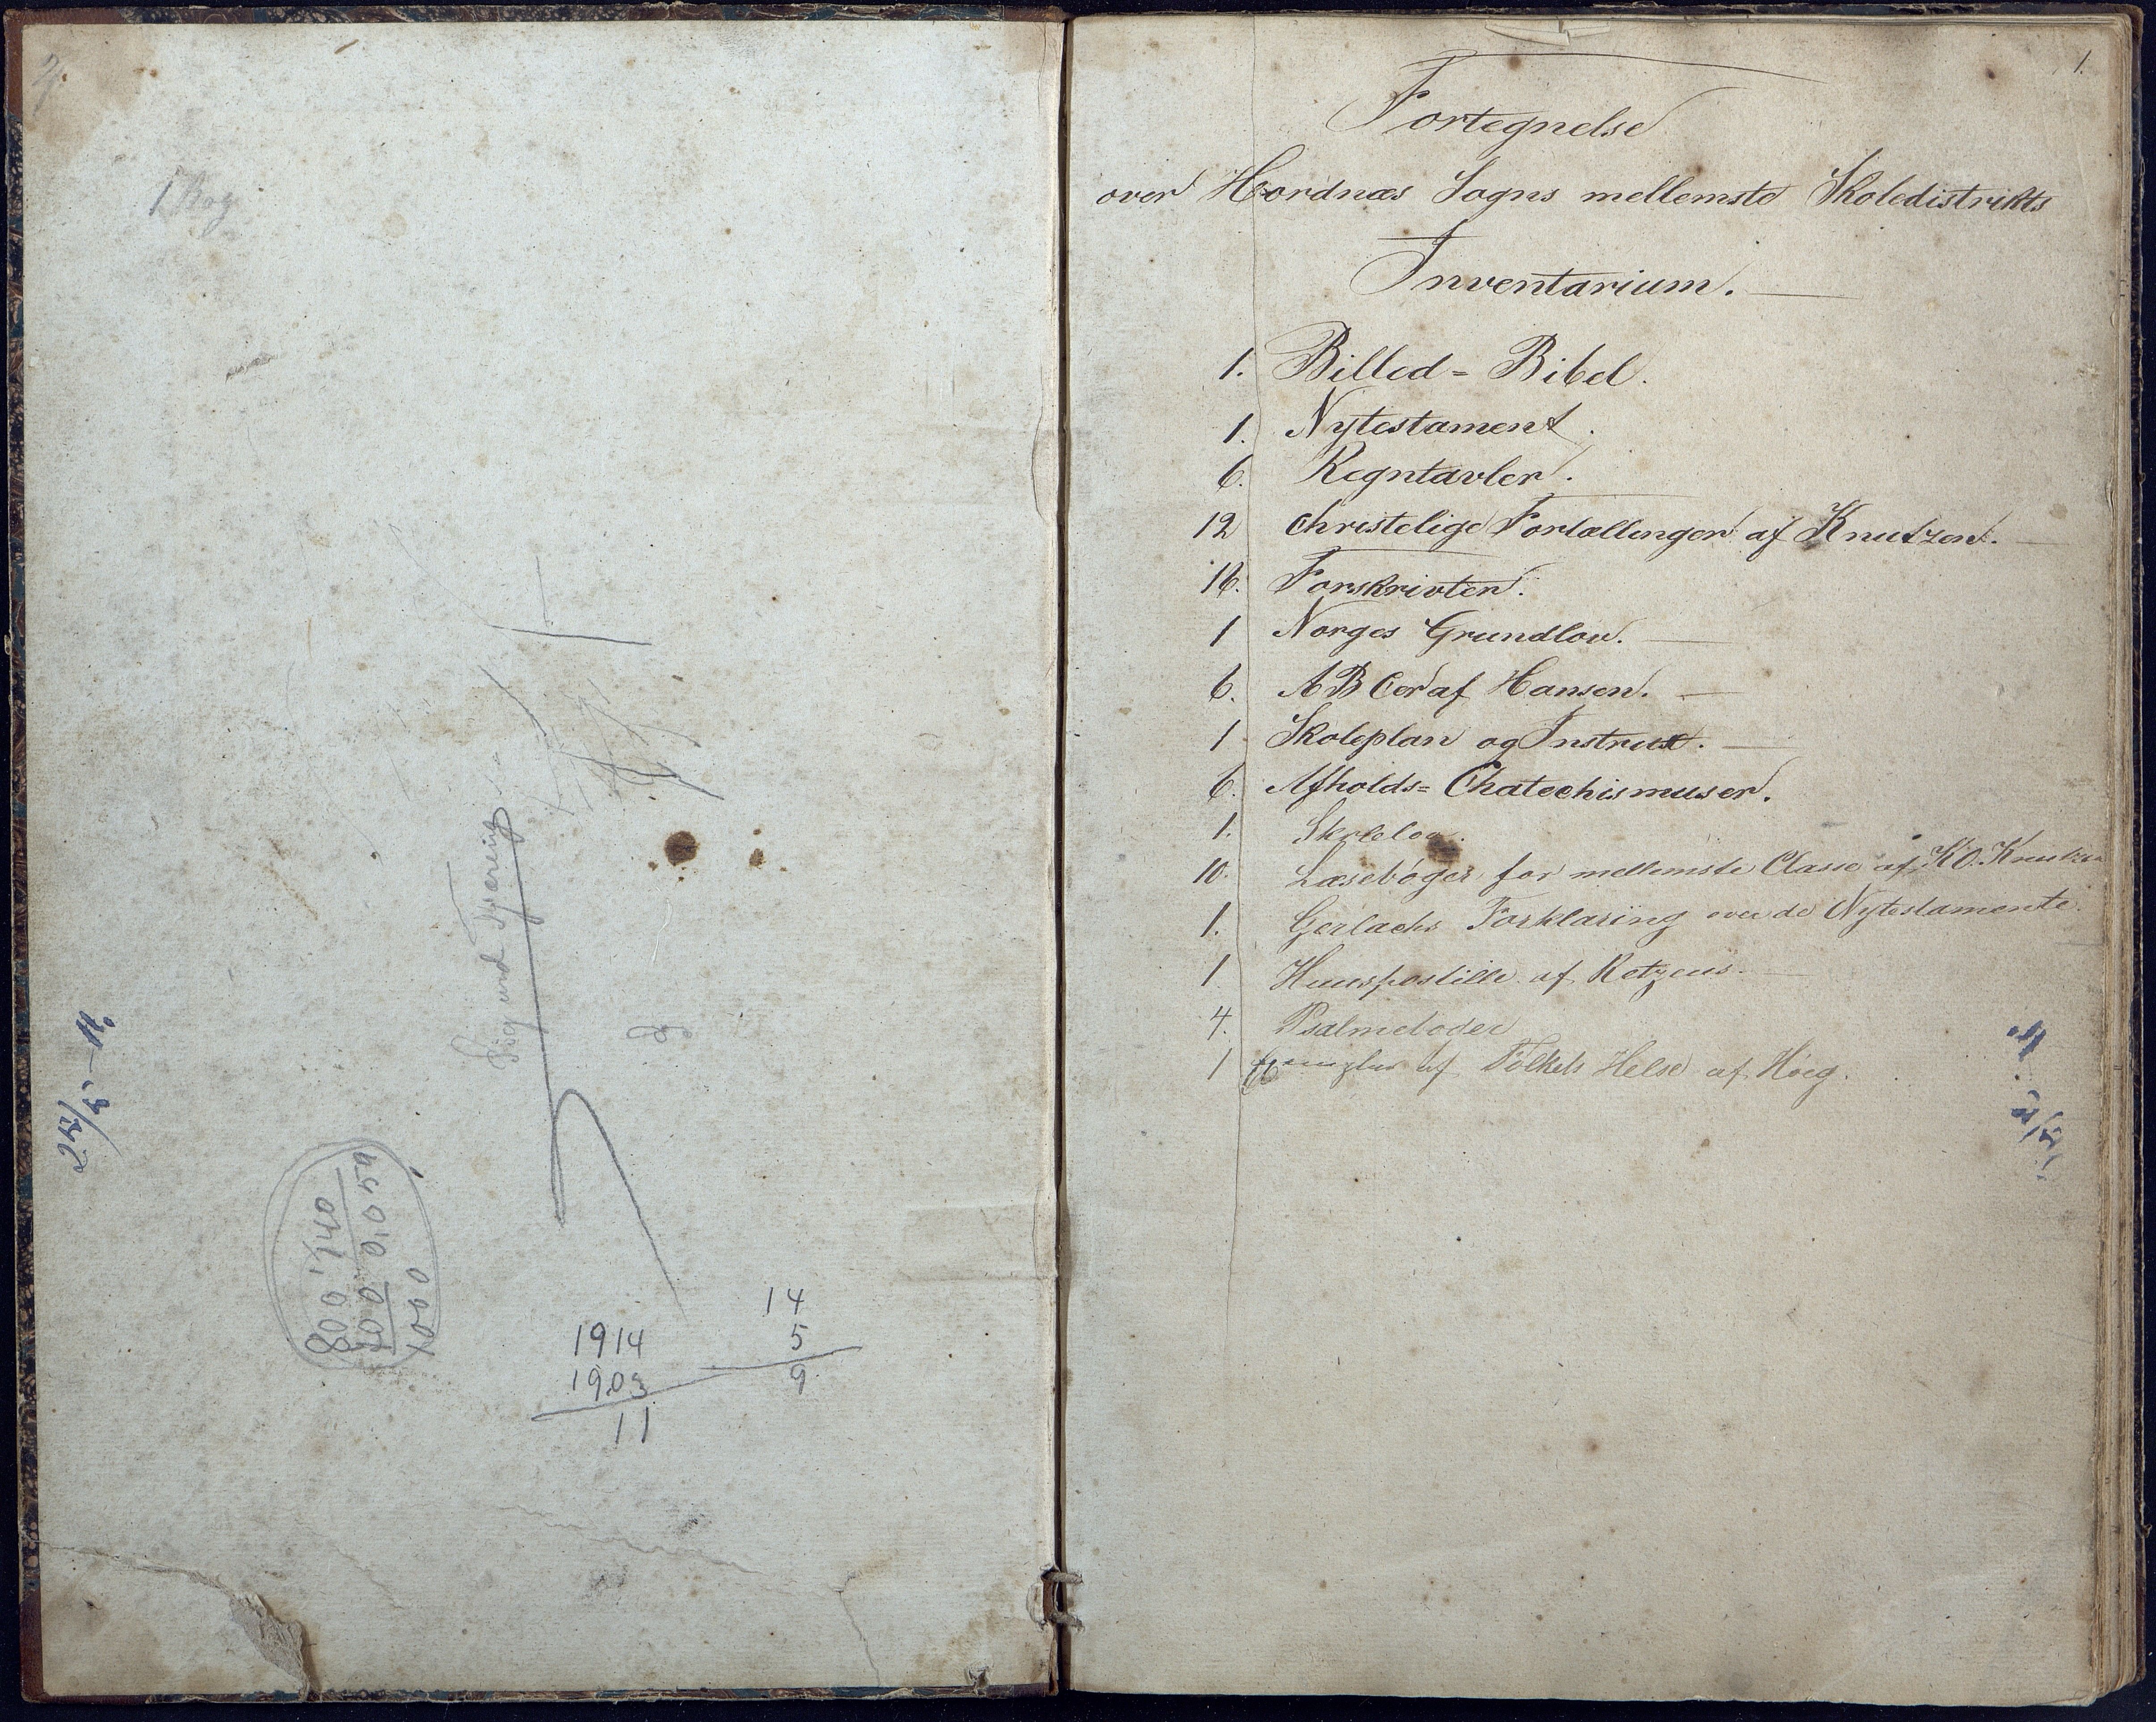 1 Bog
Sigurd
25/5 – 14.
800 1,40
1000
14
5
9
1914
1903
11
1.
Fortegnelse
over Hordnæs Sogns mellemste Skoledistrikts
Inventarium.
1. Billed = Bibel.
1. Nytestament.
6. Regntavler.
12 Christelige Fortællinger af Knutzen.
16. Forskrivter.
1 Norges Grundlov.
6. ABCer af Hansen.
1 Skoleplan og Instrux.
6. Afholds = Chatechismuser.
1. Skolelov.
10. Læsebøger for mellemste Classe af K.O. Knutzen
1. Gerlachs Forklaring over de Nytestamente.
1 Huuspostille af Retzeus.
4. Psalmeboger
1 Exemplar af Folkets Helse af Høeg.